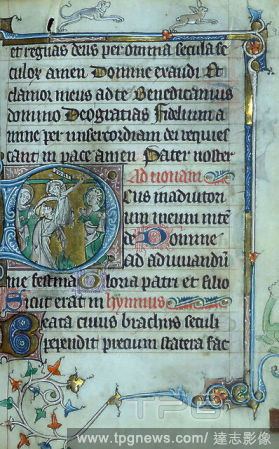 et regnas deus per omnia secula se
culor amen Domine exaudi Et
clamor meus ad te Benedicamus
domino Deo gratias Fidelium a
nime per misericordiam dei requies
cant in pace amen Pater noster
Ad nonam
Deus in adiutori
um meum inte
de Domine
ad adiuuandu
me festina Gloria patri et filio
Sicut erat in hymnus
Beata cuius brachiis seculi
pependit precium statera fac
TPG
www.tpgnews.com/ 達志影像